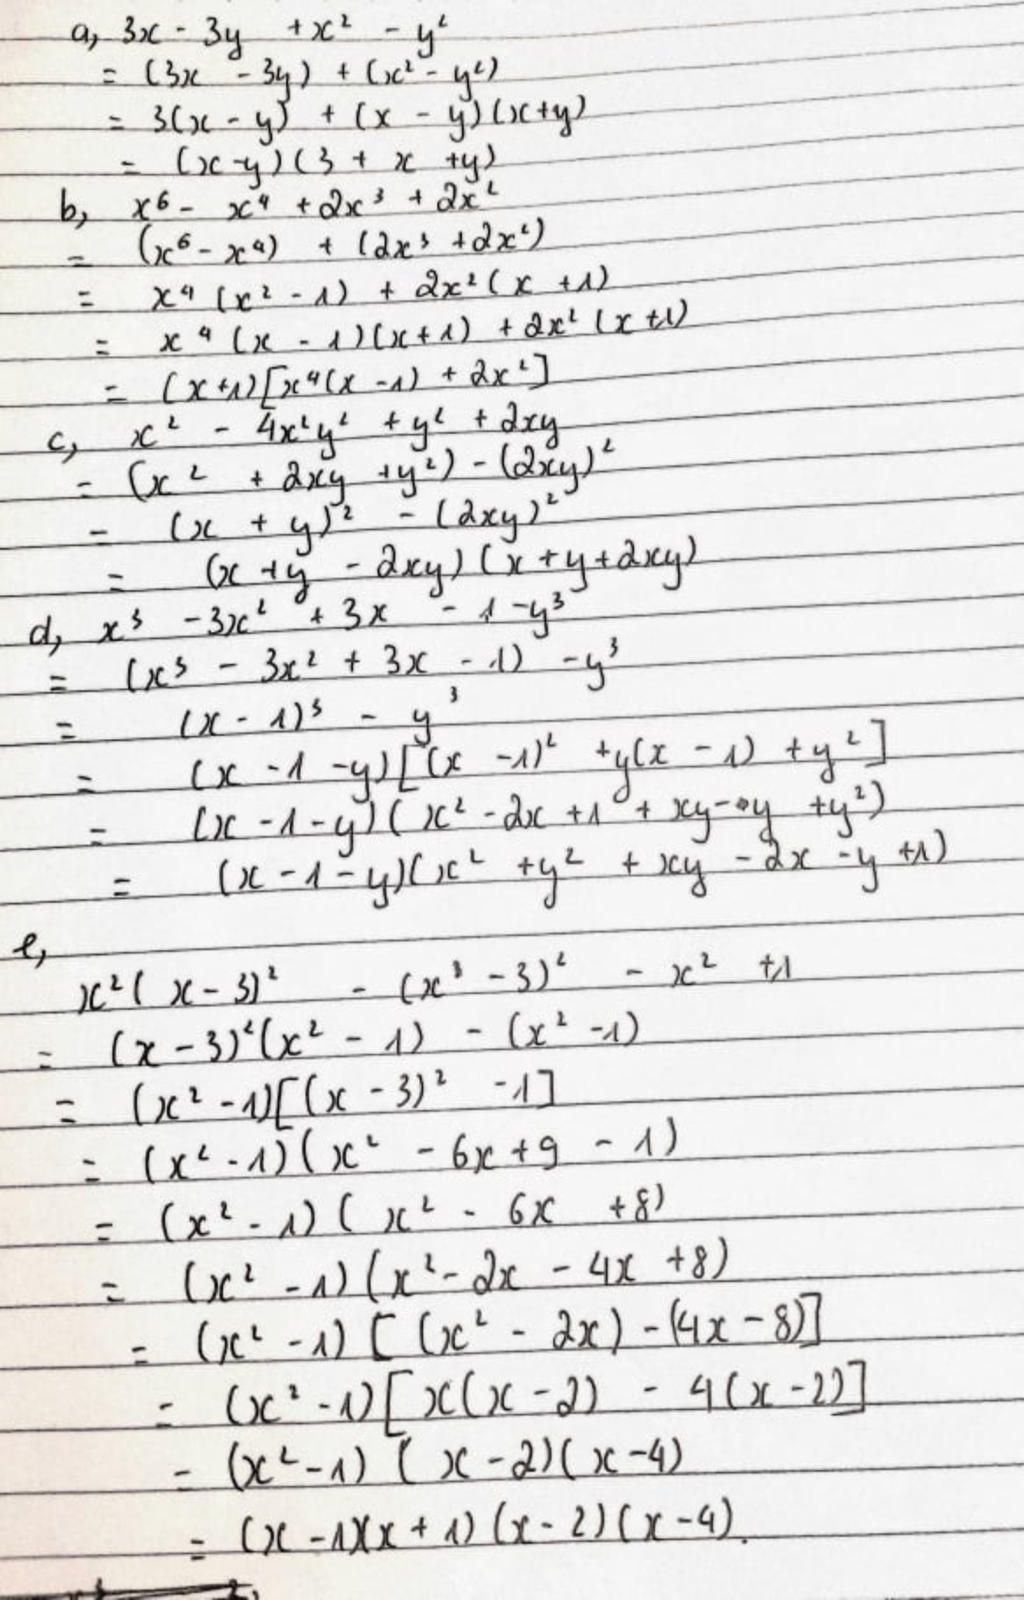 a, 3x - 3y + x² - y²
= (3x - 3y) + (x² - y²)
= 3(x - y) + (x - y)(x+y)
= (x-y)(3 + x + y)
b, x⁶ - x⁴ + 2x³ + 2x²
= (x⁶ - x⁴) + (2x³ + 2x²)
= x⁴ (x² - 1) + 2x² (x + 1)
= x⁴ (x - 1)(x+1) + 2x² (x+1)
= (x+1)[x⁴(x - 1) + 2x²]
c, x² - 4x²y² + y² + 2xy
= (x² + 2xy + y²) - (2xy)²
= (x + y)² - (2xy)²
= (x + y - 2xy) (x + y + 2xy)
d, x³ - 3x² + 3x - 1 - y³
= (x³ - 3x² + 3x - 1) - y³
= (x - 1)³ - y³
= (x - 1 - y)[(x - 1)² + y(x - 1) + y²]
= (x - 1 - y)(x² - 2x + 1 + xy - y + y²)
= (x - 1 - y)(x² + y² + xy - 2x - y + 1)
e,
x²(x - 3)² - (x³ - 3)² - x² + 1
= (x - 3)²(x² - 1) - (x² - 1)
= (x² - 1)[(x - 3)² - 1]
= (x² - 1)(x² - 6x + 9 - 1)
= (x² - 1)(x² - 6x + 8)
= (x² - 1)(x² - 2x - 4x + 8)
= (x² - 1) [(x² - 2x) - (4x - 8)]
= (x² - 1)[x(x - 2) - 4(x - 2)]
= (x² - 1) (x - 2)(x - 4)
= (x - 1)(x + 1)(x - 2)(x - 4).